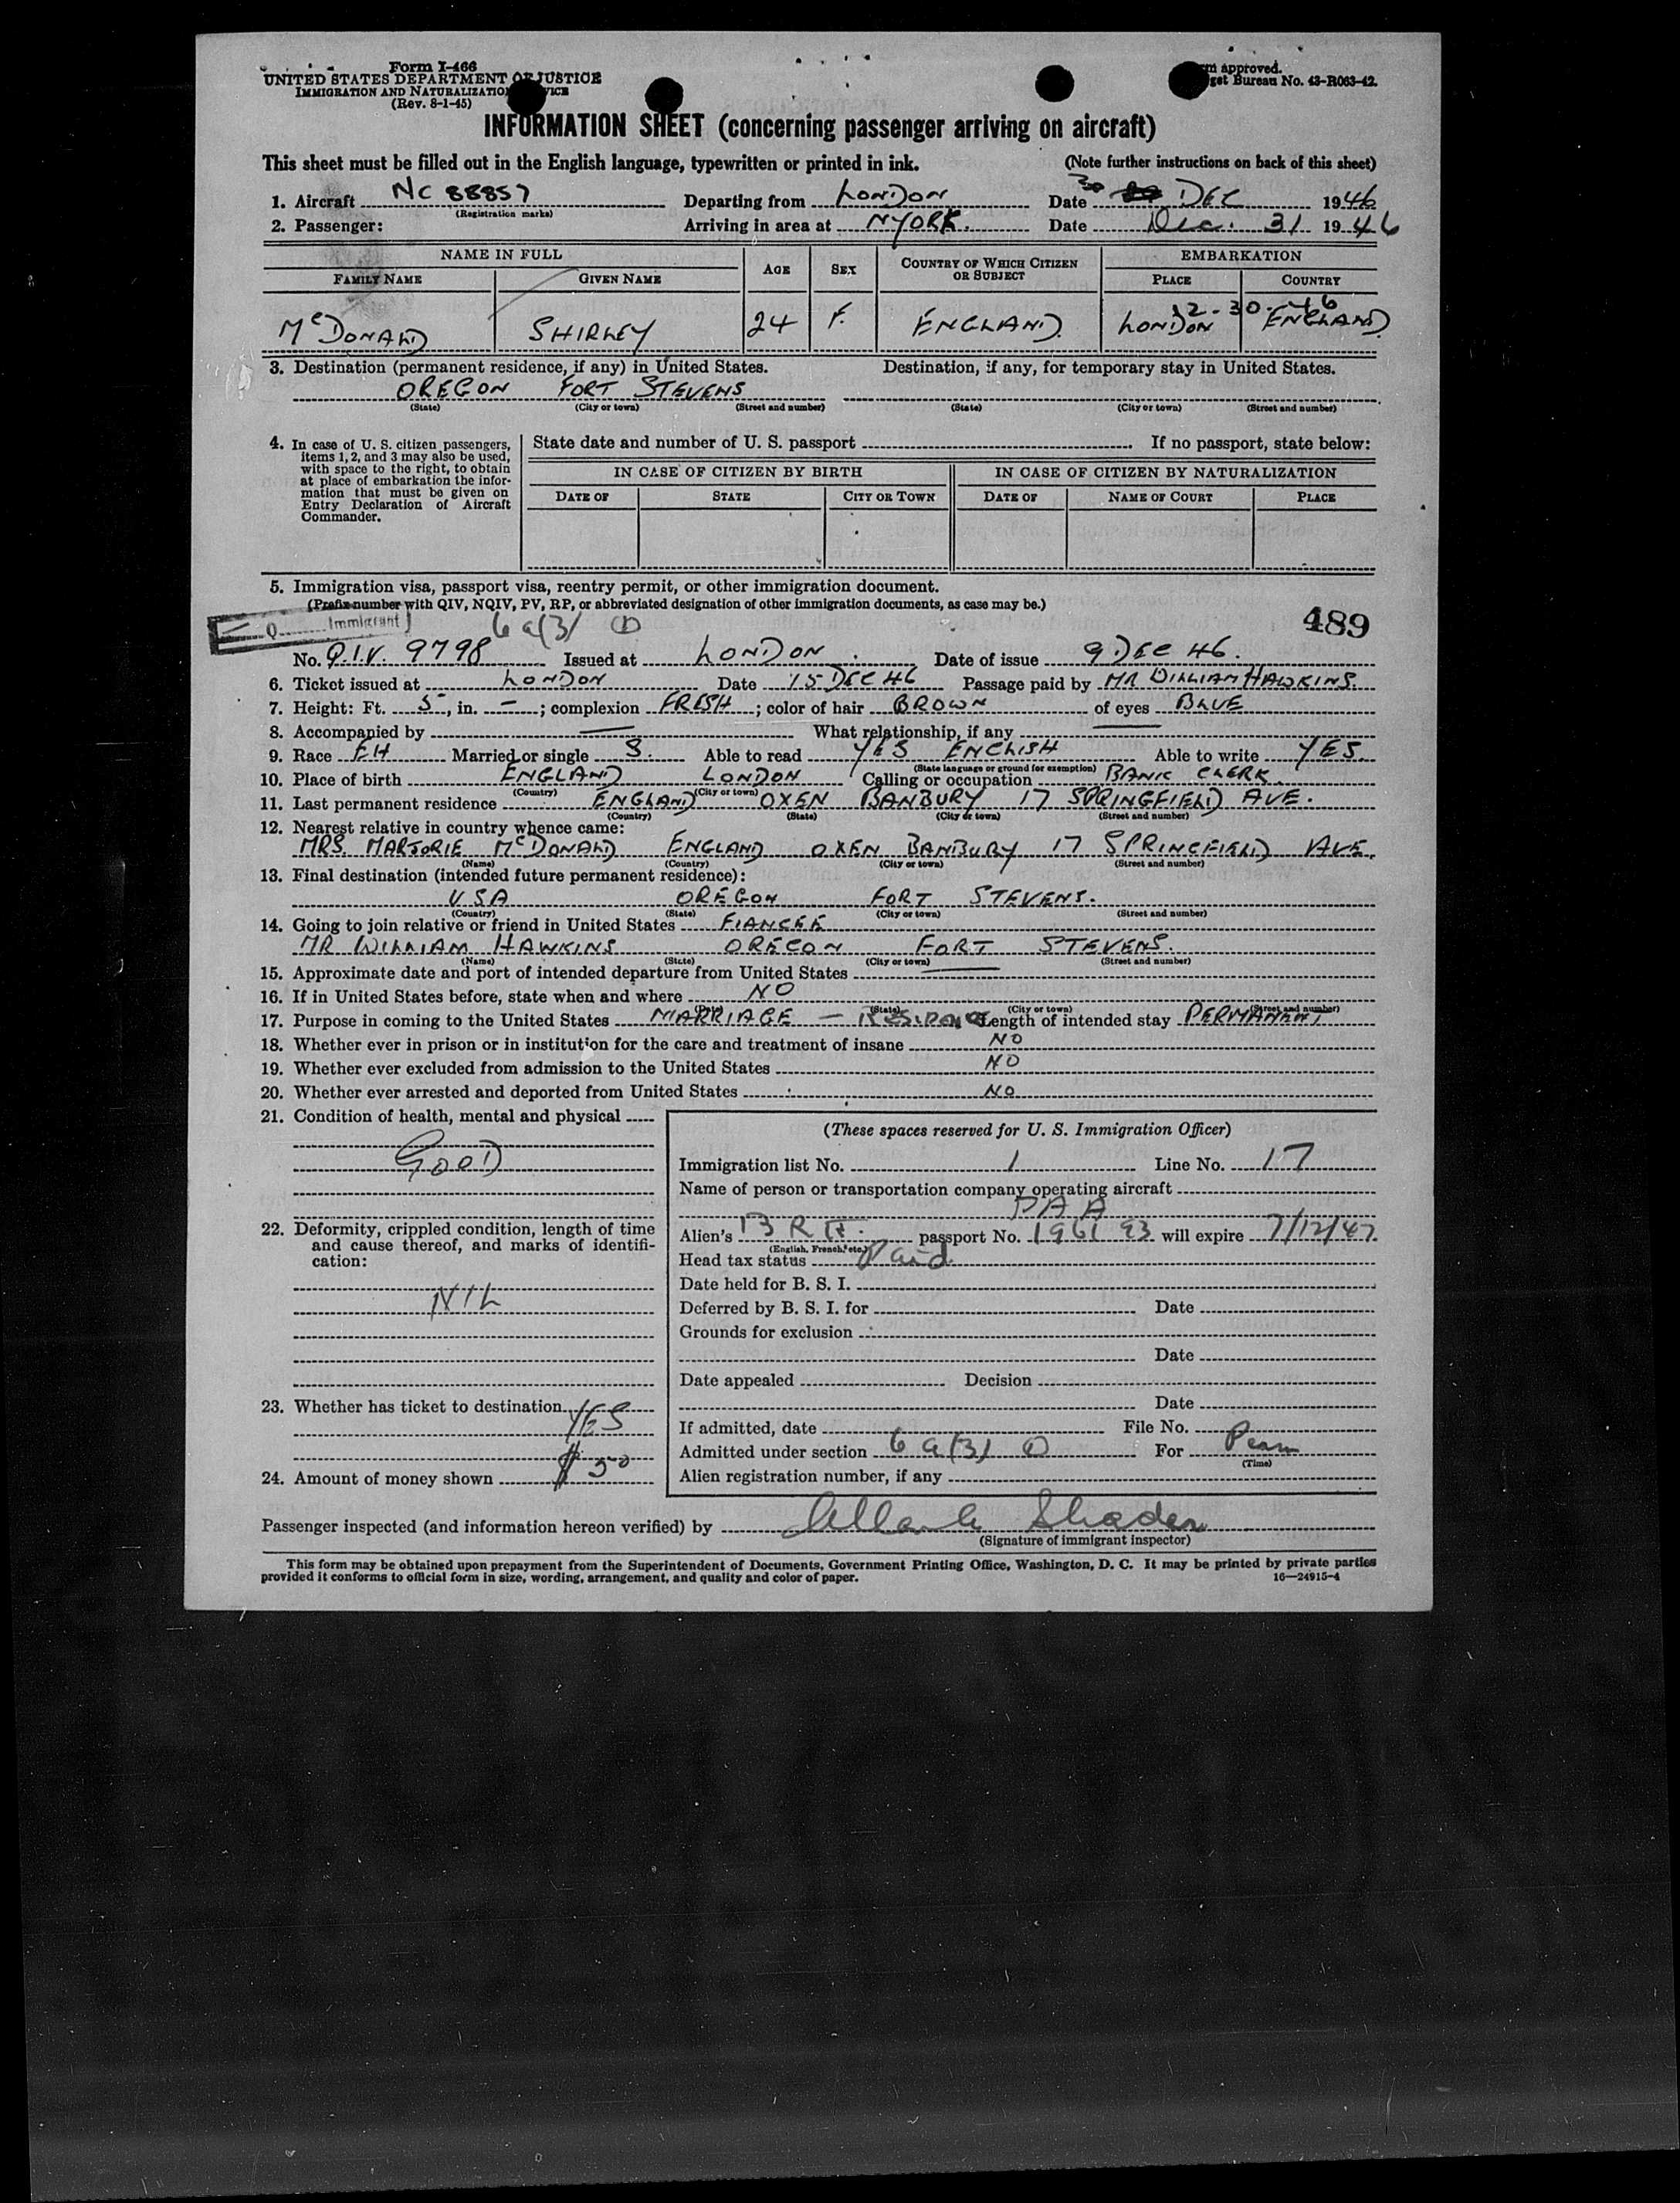 Form I-466
UNITED STATES DEPARTMENT OF JUSTICE
IMMIGRATION AND NATURALIZATION
(Rev. 8-1-45)
approved.
Bureau No. 43-R063-42.
INFORMATION SHEET (concerning passenger arriving on aircraft)
This sheet must be filled out in the English language, typewritten or printed in ink. (Note further instructions on back of this sheet)
1. Aircraft NC 88857 Departing from LONDON Date 30 DEC 1946
(Registration marks)
2. Passenger: Arriving in area at NYORK. Date Dec. 31 1946
NAME IN FULL AGE SEX COUNTRY OF WHICH CITIZEN OR SUBJECT EMBARKATION
FAMILY NAME GIVEN NAME PLACE COUNTRY
12-30-46
McDONALD SHIRLEY 24 F. ENGLAND. LONDON ENGLAND.
3. Destination (permanent residence, if any) in United States. Destination, if any, for temporary stay in United States.
OREGON FORT STEVENS
(State) (City or town) (Street and number) (State) (City or town) (Street and number)
4. In case of U. S. citizen passengers, items 1, 2, and 3 may also be used, with space to the right, to obtain at place of embarkation the information that must be given on Entry Declaration of Aircraft Commander.
State date and number of U. S. passport If no passport, state below:
IN CASE OF CITIZEN BY BIRTH IN CASE OF CITIZEN BY NATURALIZATION
DATE OF STATE CITY OR TOWN DATE OF NAME OF COURT PLACE
5. Immigration visa, passport visa, reentry permit, or other immigration document.
(Prefix number with QIV, NQIV, PV, RP, or abbreviated designation of other immigration documents, as case may be.)
Q Immigrant 6 a(3) 1 489
No. Q.I.V. 9798 Issued at LONDON Date of issue 9 DEC 46.
6. Ticket issued at LONDON Date 15 DEC 46 Passage paid by MR WILLIAM HAWKINS.
7. Height: Ft. 5, in. –; complexion FRESH; color of hair BROWN of eyes BLUE
8. Accompanied by — What relationship, if any —
9. Race EH Married or single S. Able to read YES ENGLISH Able to write YES.
(State language or ground for exemption)
10. Place of birth ENGLAND LONDON Calling or occupation BANK CLERK.
(Country) (City or town)
11. Last permanent residence ENGLAND OXEN BANBURY 17 SPRINGFIELD AVE.
(Country) (State) (City or town) (Street and number)
12. Nearest relative in country whence came:
MRS. MARJORIE McDONALD ENGLAND OXEN BANBURY 17 SPRINGFIELD AVE.
(Name) (Country) (City or town) (Street and number)
13. Final destination (intended future permanent residence):
USA OREGON FORT STEVENS.
(Country) (State) (City or town) (Street and number)
14. Going to join relative or friend in United States FIANCEE
MR WILLIAM HAWKINS OREGON FORT STEVENS.
(Name) (State) (City or town) (Street and number)
15. Approximate date and port of intended departure from United States —
16. If in United States before, state when and where NO
(Date) (State) (City or town) (Street and number)
17. Purpose in coming to the United States MARRIAGE – RESIDENCE Length of intended stay PERMANENT
18. Whether ever in prison or in institution for the care and treatment of insane NO
19. Whether ever excluded from admission to the United States NO
20. Whether ever arrested and deported from United States NO
21. Condition of health, mental and physical
GOOD
22. Deformity, crippled condition, length of time and cause thereof, and marks of identification:
NIL
23. Whether has ticket to destination YES
24. Amount of money shown $ 50
(These spaces reserved for U. S. Immigration Officer)
Immigration list No. 1 Line No. 17
Name of person or transportation company operating aircraft
PAA
Alien's BRIT. passport No. 196193 will expire 7/12/47
(English, French, etc.)
Head tax status Paid
Date held for B. S. I.
Deferred by B. S. I. for Date
Grounds for exclusion
Date
Date appealed Decision
Date
If admitted, date File No.
Admitted under section 6 a(3) 1 For Perm
(Time)
Alien registration number, if any
Passenger inspected (and information hereon verified) by
(Signature of immigrant inspector)
This form may be obtained upon prepayment from the Superintendent of Documents, Government Printing Office, Washington, D. C. It may be printed by private parties
provided it conforms to official form in size, wording, arrangement, and quality and color of paper. 16—24915-4